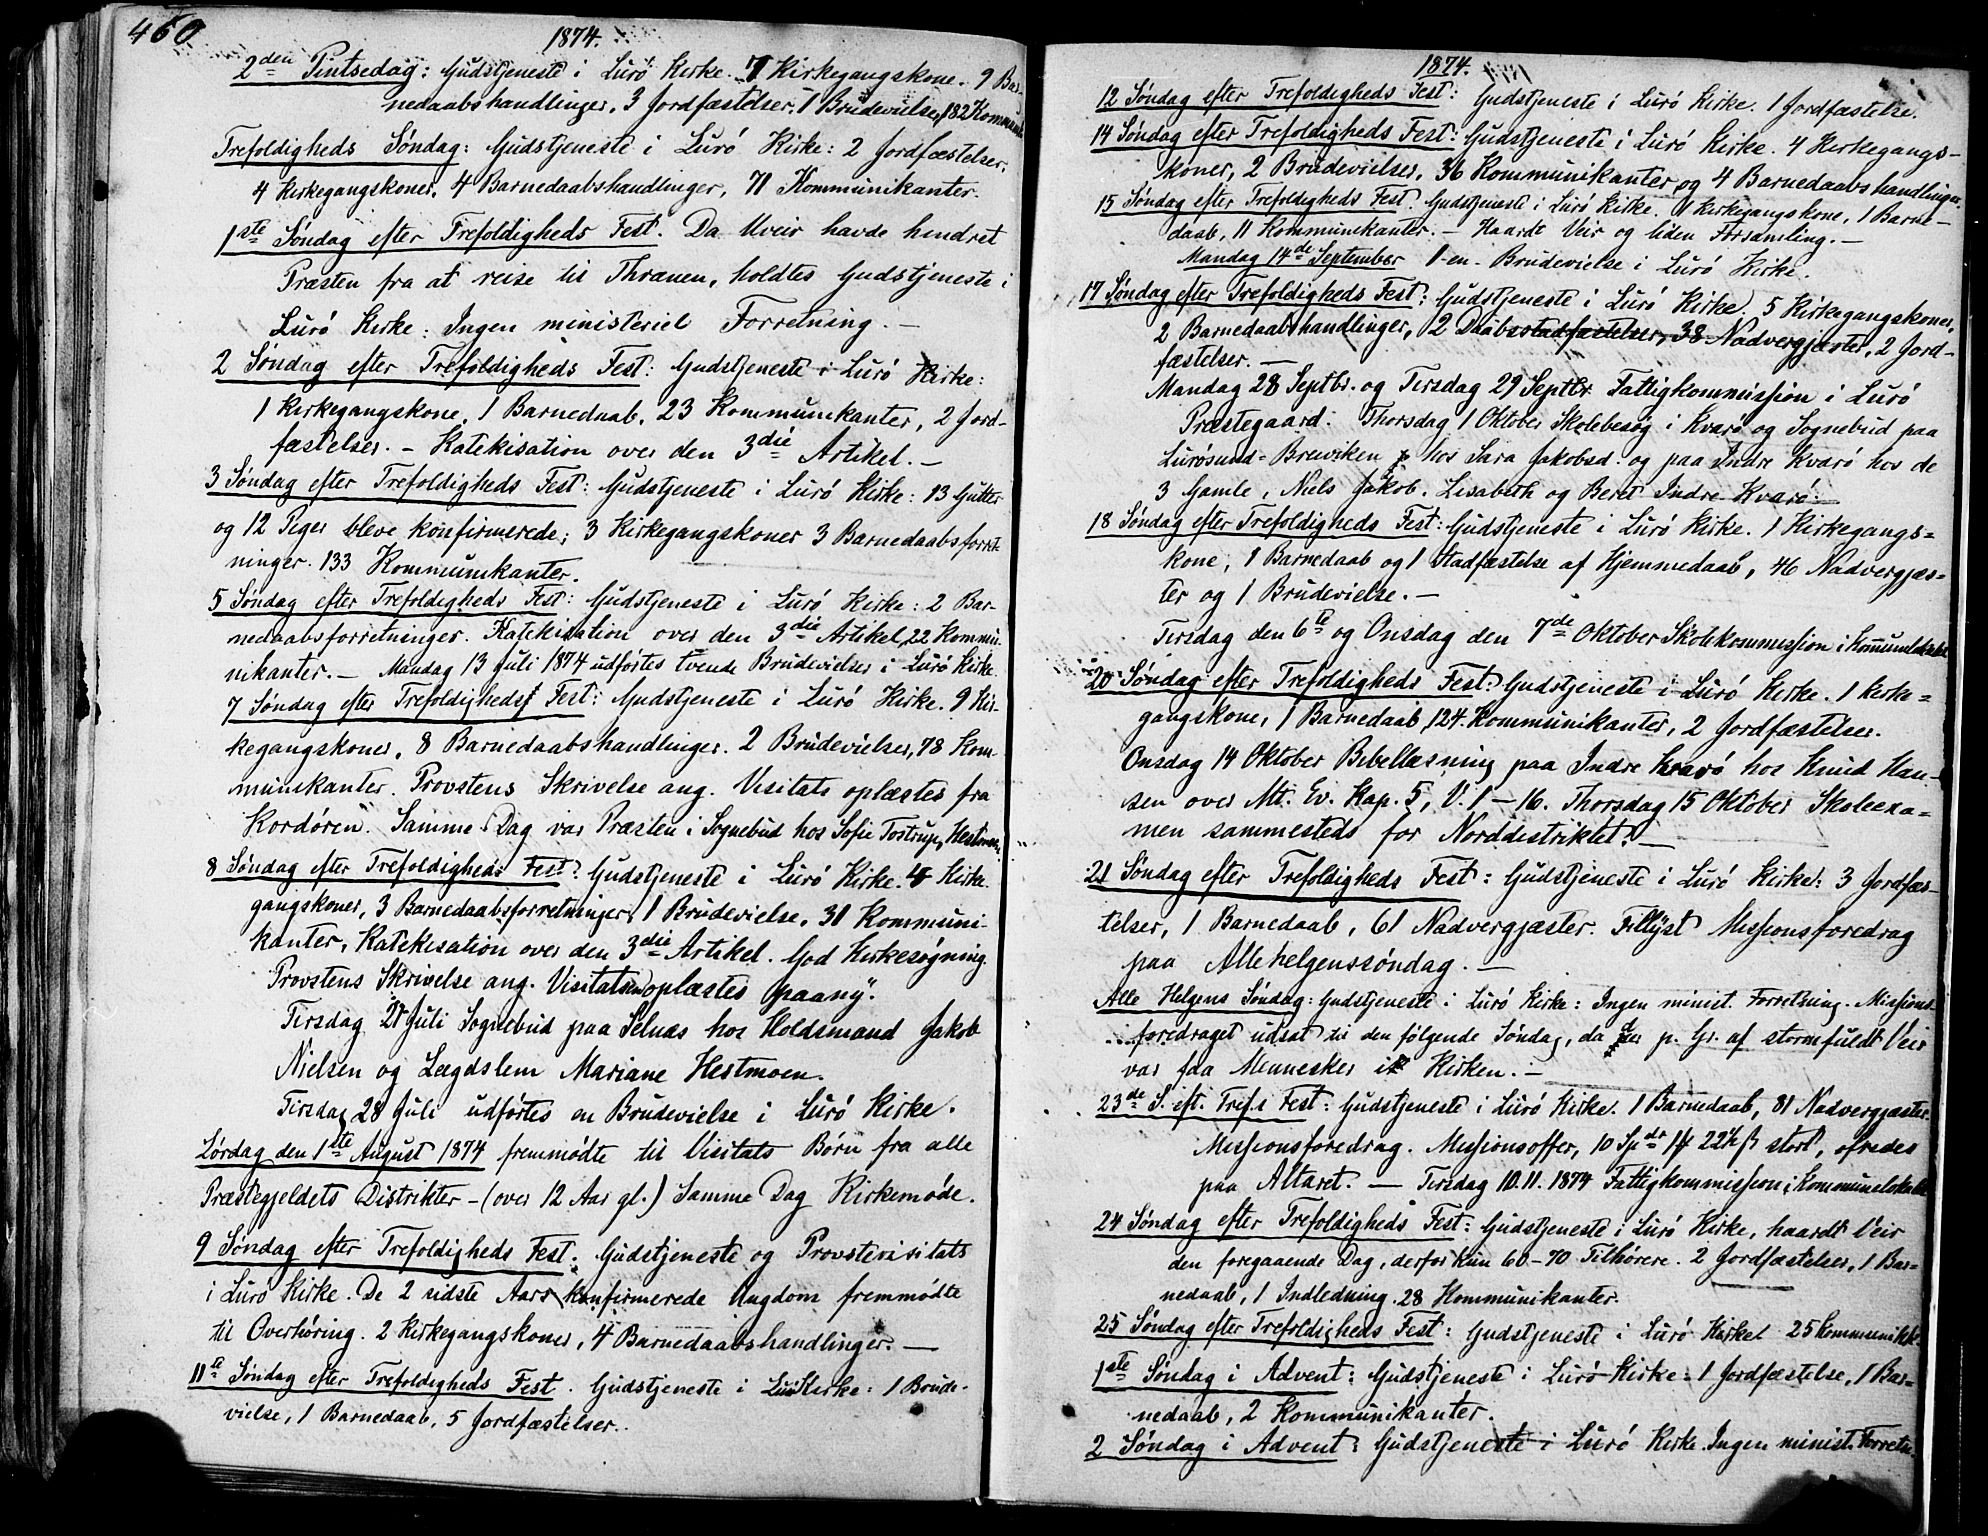 460
1874.
2den Pintsedag: Gudstjeneste i Lurö Kirke. 7 Kirkegangskone. 9 Bar-
nedaabshandlinger, 3 Jordfæstelser, 1 Brudevielse, 182 Kommunik
Trefoldigheds Søndag: Gudstjeneste i Lurö Kirke: 2 Jordfæstelser,
4 Kirkegangskoner, 4 Barnedaabshandlinger, 71 Kommunikanter.
1ste Søndag efter Trefoldigheds Fest. Da Uveir havde hindret
Præsten fra at reise til Thrænen, holdtes Gudstjeneste i
Lurö Kirke: Ingen ministeriel Forretning. –
2 Søndag efter Trefoldigheds Fest: Gudstjeneste i Lurö Kirke:
1 Kirkegangskone, 1 Barnedaab, 23 Kommunikanter, 2 Jord-
fæstelser. – Katekisation over den 3die Artikel. –
3 Søndag efter Trefoldigheds Fest: Gudstjeneste i Lurö Kirke: 13 Gutter
og 12 Piger bleve konfirmerede; 3 Kirkegangskoner 3 Barnedaabsforret-
ninger. 133 Kommunikanter.
5 Søndag efter Trefoldigheds Fest: Gudstjeneste i Lurö Kirke: 2 Bar-
nedaabsforretninger. Katekisation over den 3die Artikel, 22 Kommu-
nikanter. – Mandag 13 Juli 1874 udførtes tvende Brudevielser i Lurö Kirke.
7 Søndag efter Trefoldigheds Fest: Gudstjeneste i Lurö Kirke. 9 Kir-
kegangskoner, 8 Barnedaabshandlinger. 2 Brudevielser, 78 Kom-
munikanter. Provstens Skrivelse ang. Visitats oplæstes fra
Kordøren. Samme Dag var Præsten i Sognebud hos Sofie Tostrup, Hestmoen
8 Søndag efter Trefoldigheds Fest: Gudstjeneste i Lurö Kirke. 4 Kirke-
gangskoner, 3 Barnedaabsforretninger, 1 Brudevielse, 31 Kommuni-
kanter, Katekisation over den 3die Artikel. God Kirkesøgning.
Provstens Skrivelse ang. Visitatsen oplæstes paany.
Tirsdag 21 Juli Sognebud paa Selnæs hos Holdsmand Jakob
Nielsen og Lægdslem Mariane Hestmoen.
Tirsdag 28 Juli udførtes en Brudevielse i Lurö Kirke.
Lørdag den 1ste August 1874 fremmødte til Visitats Børn fra alle
Præstegjeldets Distrikter – (over 12 Aar gl.) Samme Dag Kirkemøde.
9 Søndag efter Trefoldigheds Fest: Gudstjeneste og Provstevisitats
i Lurö Kirke. De 2 sidste Aars konfirmerede Ungdom fremmødte
til Overhøring. 2 Kirkegangskoner, 4 Barnedaabshandlinger. –
11te Søndag efter Trefoldigheds Fest. Gudstjeneste i Lurö Kirke: 1 Brude-
vielse, 1 Barnedaab, 5 Jordfæstelser.
1874.
12 Søndag efter Trefoldigheds Fest: Gudstjeneste i Lurö Kirke. 1 Jordfæstelse.
14 Søndag efter Trefoldigheds Fest: Gudstjeneste i Lurö Kirke. 4 Kirkegangs-
koner, 2 Brudevielser, 36 Kommunikanter og 4 Barnedaabshandlinger.
15 Søndag efter Trefoldigheds Fest. Gudstjeneste i Lurö Kirke. 1 Kirkegangskone, 1 Barne-
daab, 11 Kommunikanter. – Haardt Veir og liden Forsamling. –
Mandag 14de September 1 en Brudevielse i Lurö Kirke.
17 Søndag efter Trefoldigheds Fest: Gudstjeneste i Lurö Kirke. 5 Kirkegangskoner,
2 Barnedaabshandlinger, 2 Daabsstadfæstelser, 38 Nadvergjæster, 2 Jord-
fæstelser. –
Mandag 28 Septbr. og Tirsdag 29 Septbr. Fattigkommission i Lurö
Præstegaard. Thorsdag 1 Oktober Skolebesøg i Kvarö og Sognebud paa
Lurösund-Breviken hos Sara Jakobsd. og paa Indre Kvarö hos de
3 Gamle, Niels Jakob. Lisabeth og Beret Indre Kvarö. –
18 Søndag efter Trefoldigheds Fest: Gudstjeneste i Lurö Kirke. 1 Kirkegangs-
kone, 1 Barnedaab og 1 Stadfæstelse af Hjemmedaab, 46 Nadvergjæs-
ter og 1 Brudevielse. –
Tirsdag den 6te og Onsdag den 7de Oktober Skolekommission i Kommunelokalet
20 Søndag efter Trefoldigheds Fest: Gudstjeneste i Lurö Kirke. 1 Kirke-
gangskone, 1 Barnedaab, 124 Kommunikanter, 2 Jordfæstelser.
Onsdag 14 Oktober Bibellæsning paa Indre Kvarö hos Knud Han-
sen over Mt. Ev. Kap. 5, V. 1 – 16. Thorsdag 15 Oktober Skoleexa-
men sammesteds for Norddistriktet. –
21 Søndag efter Trefoldigheds Fest: Gudstjeneste i Lurö Kirke: 3 Jordfæs-
telser, 1 Barnedaab, 61 Nadvergjæster. Tillyst Missionsforedrag
paa Allehelgenssøndag. –
Alle Helgens Søndag: Gudstjeneste i Lurö Kirke: Ingen minist. Forretning. Missions-
foredraget udsat til den følgende Søndag, da der p. Gr. af stormfuldt Veir
var faa Mennesker i Kirken. –
23de S. eft. Tref.s Fest: Gudstjeneste i Lurö Kirke. 1 Barnedaab, 81 Nadvergjæster.
Missionsforedrag. Missionsoffer, 10 Spdr 1 22½ ß stort, ofredes
paa Altaret. – Tirsdag 10.11.1874 Fattigkommission i Kommunelokalet
24 Søndag efter Trefoldigheds Fest: Gudstjeneste i Lurö Kirke, haardt Veir
den foregaaende Dag, derfor kun 60–70 Tilhørere. 2 Jordfæstelser, 1 Bar-
nedaab, 1 Indledning. 28 Kommunikanter.
25 Søndag efter Trefoldigheds Fest: Gudstjeneste i Lurö Kirke. 25 Kommunik
1ste Søndag i Advent: Gudstjeneste i Lurö Kirke: 1 Jordfæstelse, 1 Bar-
nedaab, 2 Kommunikanter.
2 Søndag i Advent: Gudstjeneste i Lurö Kirke. Ingen minist. Forretn.